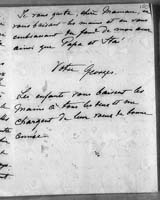 Je vous quitte, chère Maman, en
vous baisant les mains et en vous
embrassant du fond de mon âme
ainsi que Papa et
Votre Georges.
Les enfants vous baisent les
mains à tous les deux et me
chargent de leurs vœux de bonne
année.